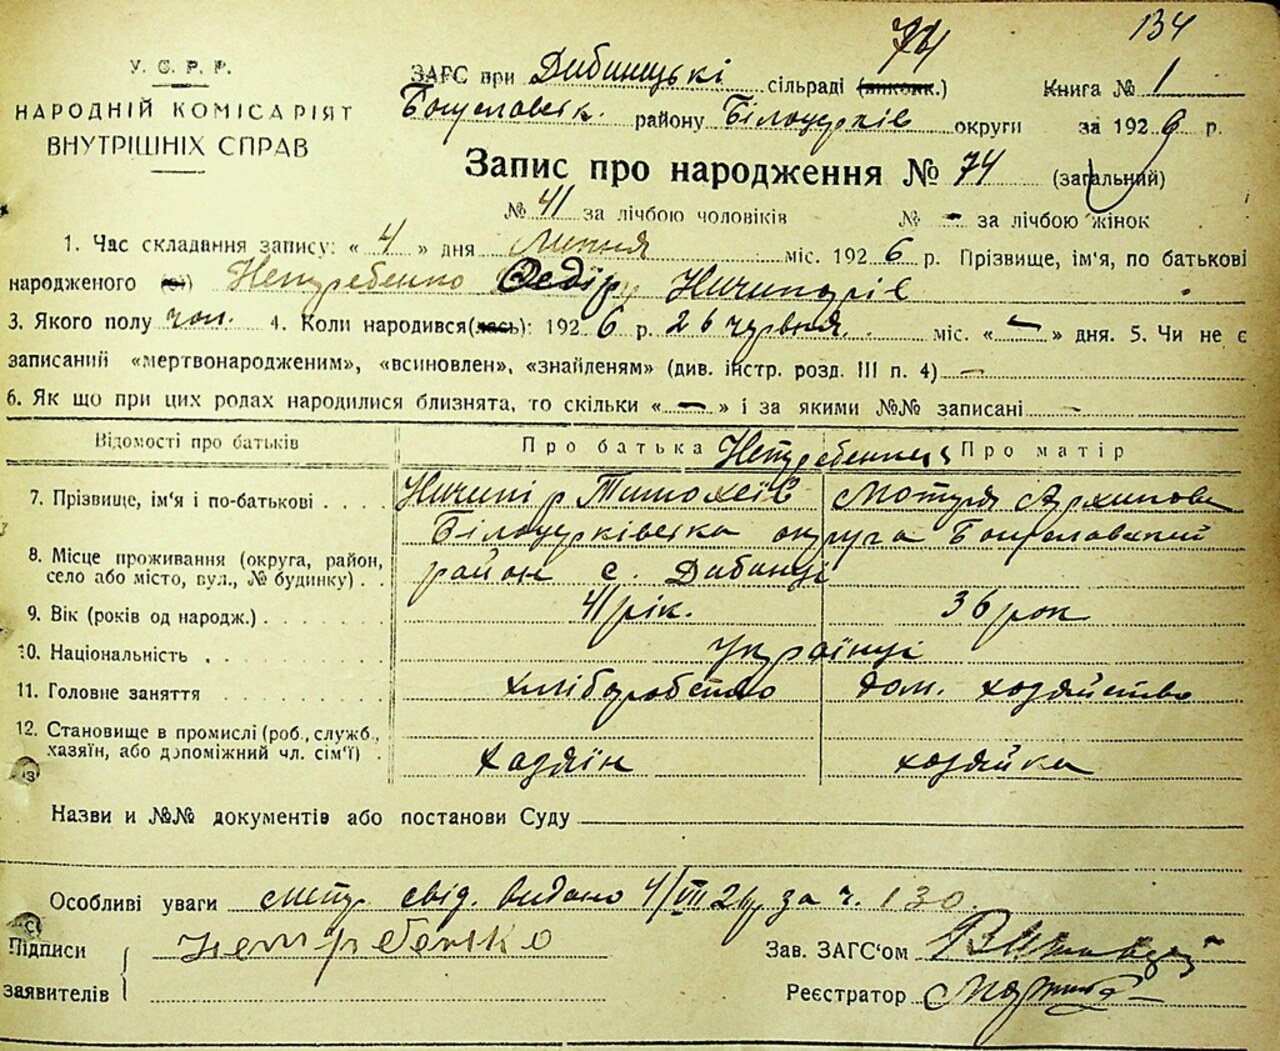 134
74
У. С. Р. Р.
НАРОДНІЙ КОМІСАРІЯТ
ВНУТРІШНІХ СПРАВ
ЗАГС при Дибинецькі сільраді (виконк.) Книга № 1
Богуславськ. району Білоцерків округи за 1926 р.
Запис про народження № 74 (загальний)
№ 41 за лічбою чоловіків № - за лічбою жінок
1. Час складання запису: « 4 » дня Липня міс. 1926 р. Прізвище, ім'я, по батькові
народженого (ої) Нетребенко Федір Ничипорів
3. Якого полу чол. 4. Коли народився(лась): 1926 р. 26 червня міс. « - » дня. 5. Чи не є
записаний «мертвонародженим», «всиновлен», «знайденям» (див. інстр. розд. III п. 4) -
6. Як що при цих родах народилися близнята, то скільки « - » і за якими №№ записані -
Відомості про батьків Про батька Про матір
Нетребенки
7. Прізвище, ім'я і по-батькові . . . . Ничипір Тимохеїв Мотря Архипова
Білоцерківська округа Богуславский
8. Місце проживання (округа, район,
село або місто, вул., № будинку) . . район с. Дибинці
9. Вік (років од народж.) . . . . . 41 рік. 36 рок
10. Національність . . . . . . . Українці
11. Головне заняття . . . . . . . хліборобство дом. хозяйство
12. Становище в промислі (роб., служб.,
хазяїн, або допоміжний чл. сім'ї) . хазяїн хозяйка
Назви и №№ документів або постанови Суду
Особливі уваги метр. свід. видано 4/VII 26 р. за ч. 130.
Підписи Нетребенко Зав. ЗАГС'ом
заявителів Реєстратор